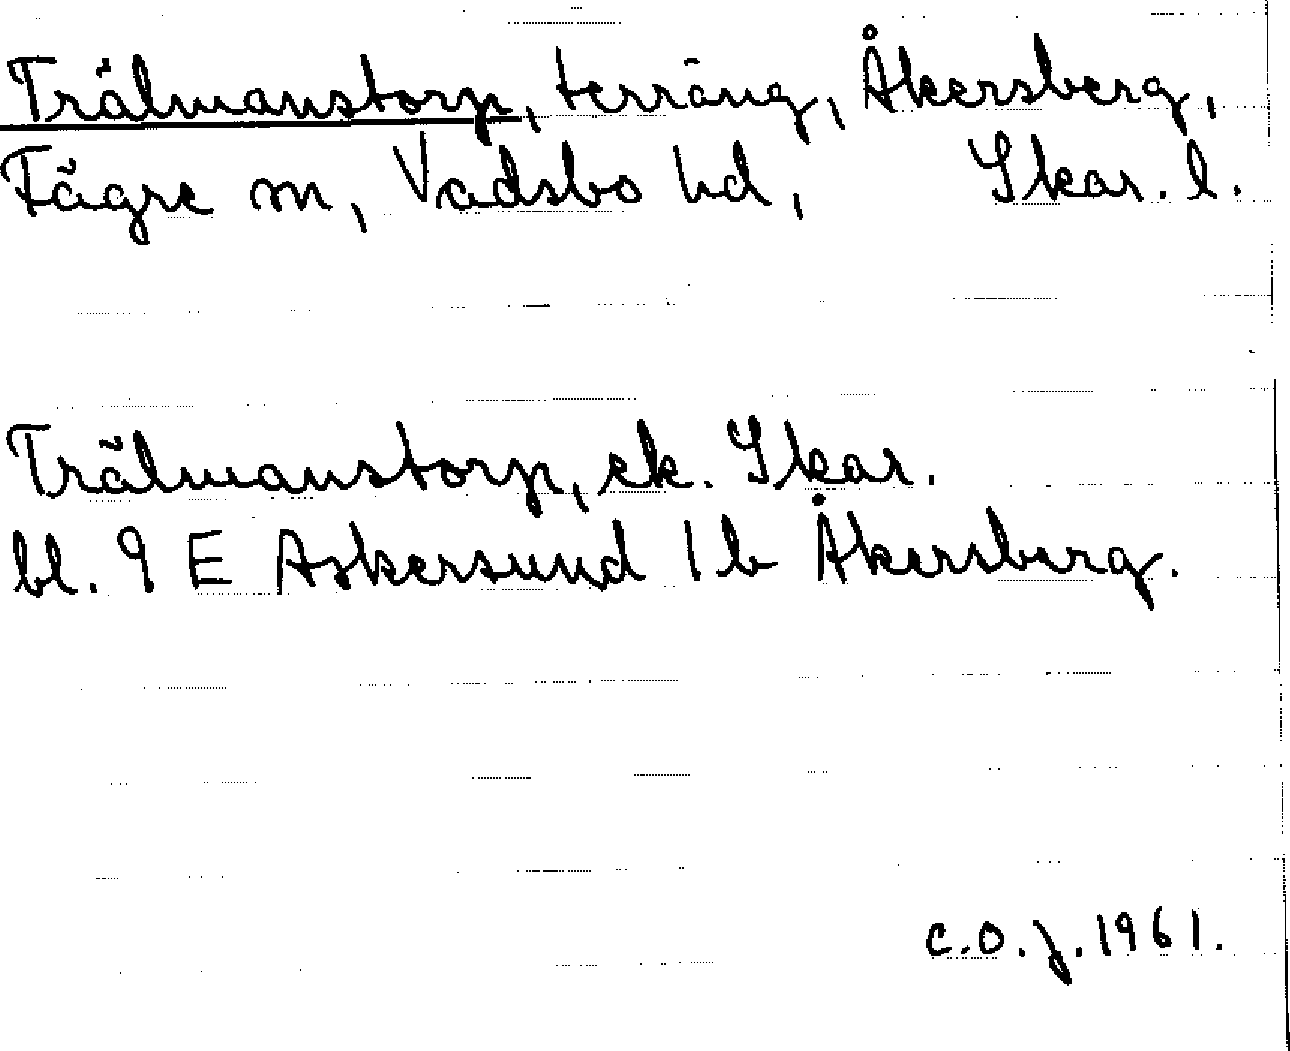 Trälmanstorp, terräng, Åkersberg,
Fägre sn, Vadsbo hd, Skar. l.
Trälmanstorp, ek. Skar.
bl. 9 E Askersund 1 b Åkersberg.
C.O.J. 1961.